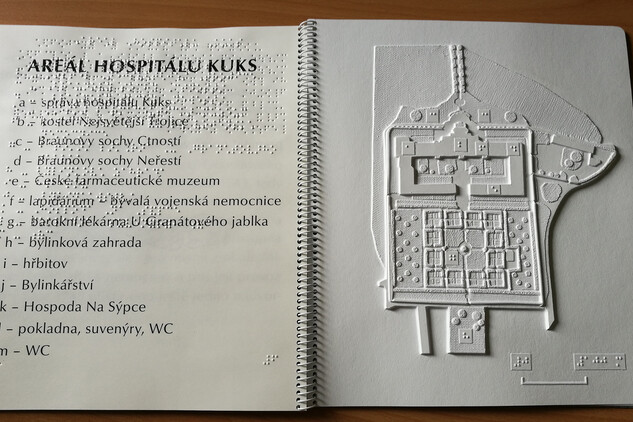 AREÁL HOSPITÁLU KUKS
a – správa hospitálu Kuks
b – kostel Nejsvětější Trojice
c – Braunovy sochy Ctností
d – Braunovy sochy Neřestí
e – České farmaceutické muzeum
f – lapidárium – bývalá vojenská nemocnice
g – barokní lékárna U Granátového jablka
h – bylinková zahrada
i – hřbitov
j – Bylinkářství
k – Hospoda Na Sýpce
l – pokladna, suvenýry, WC
m – WC